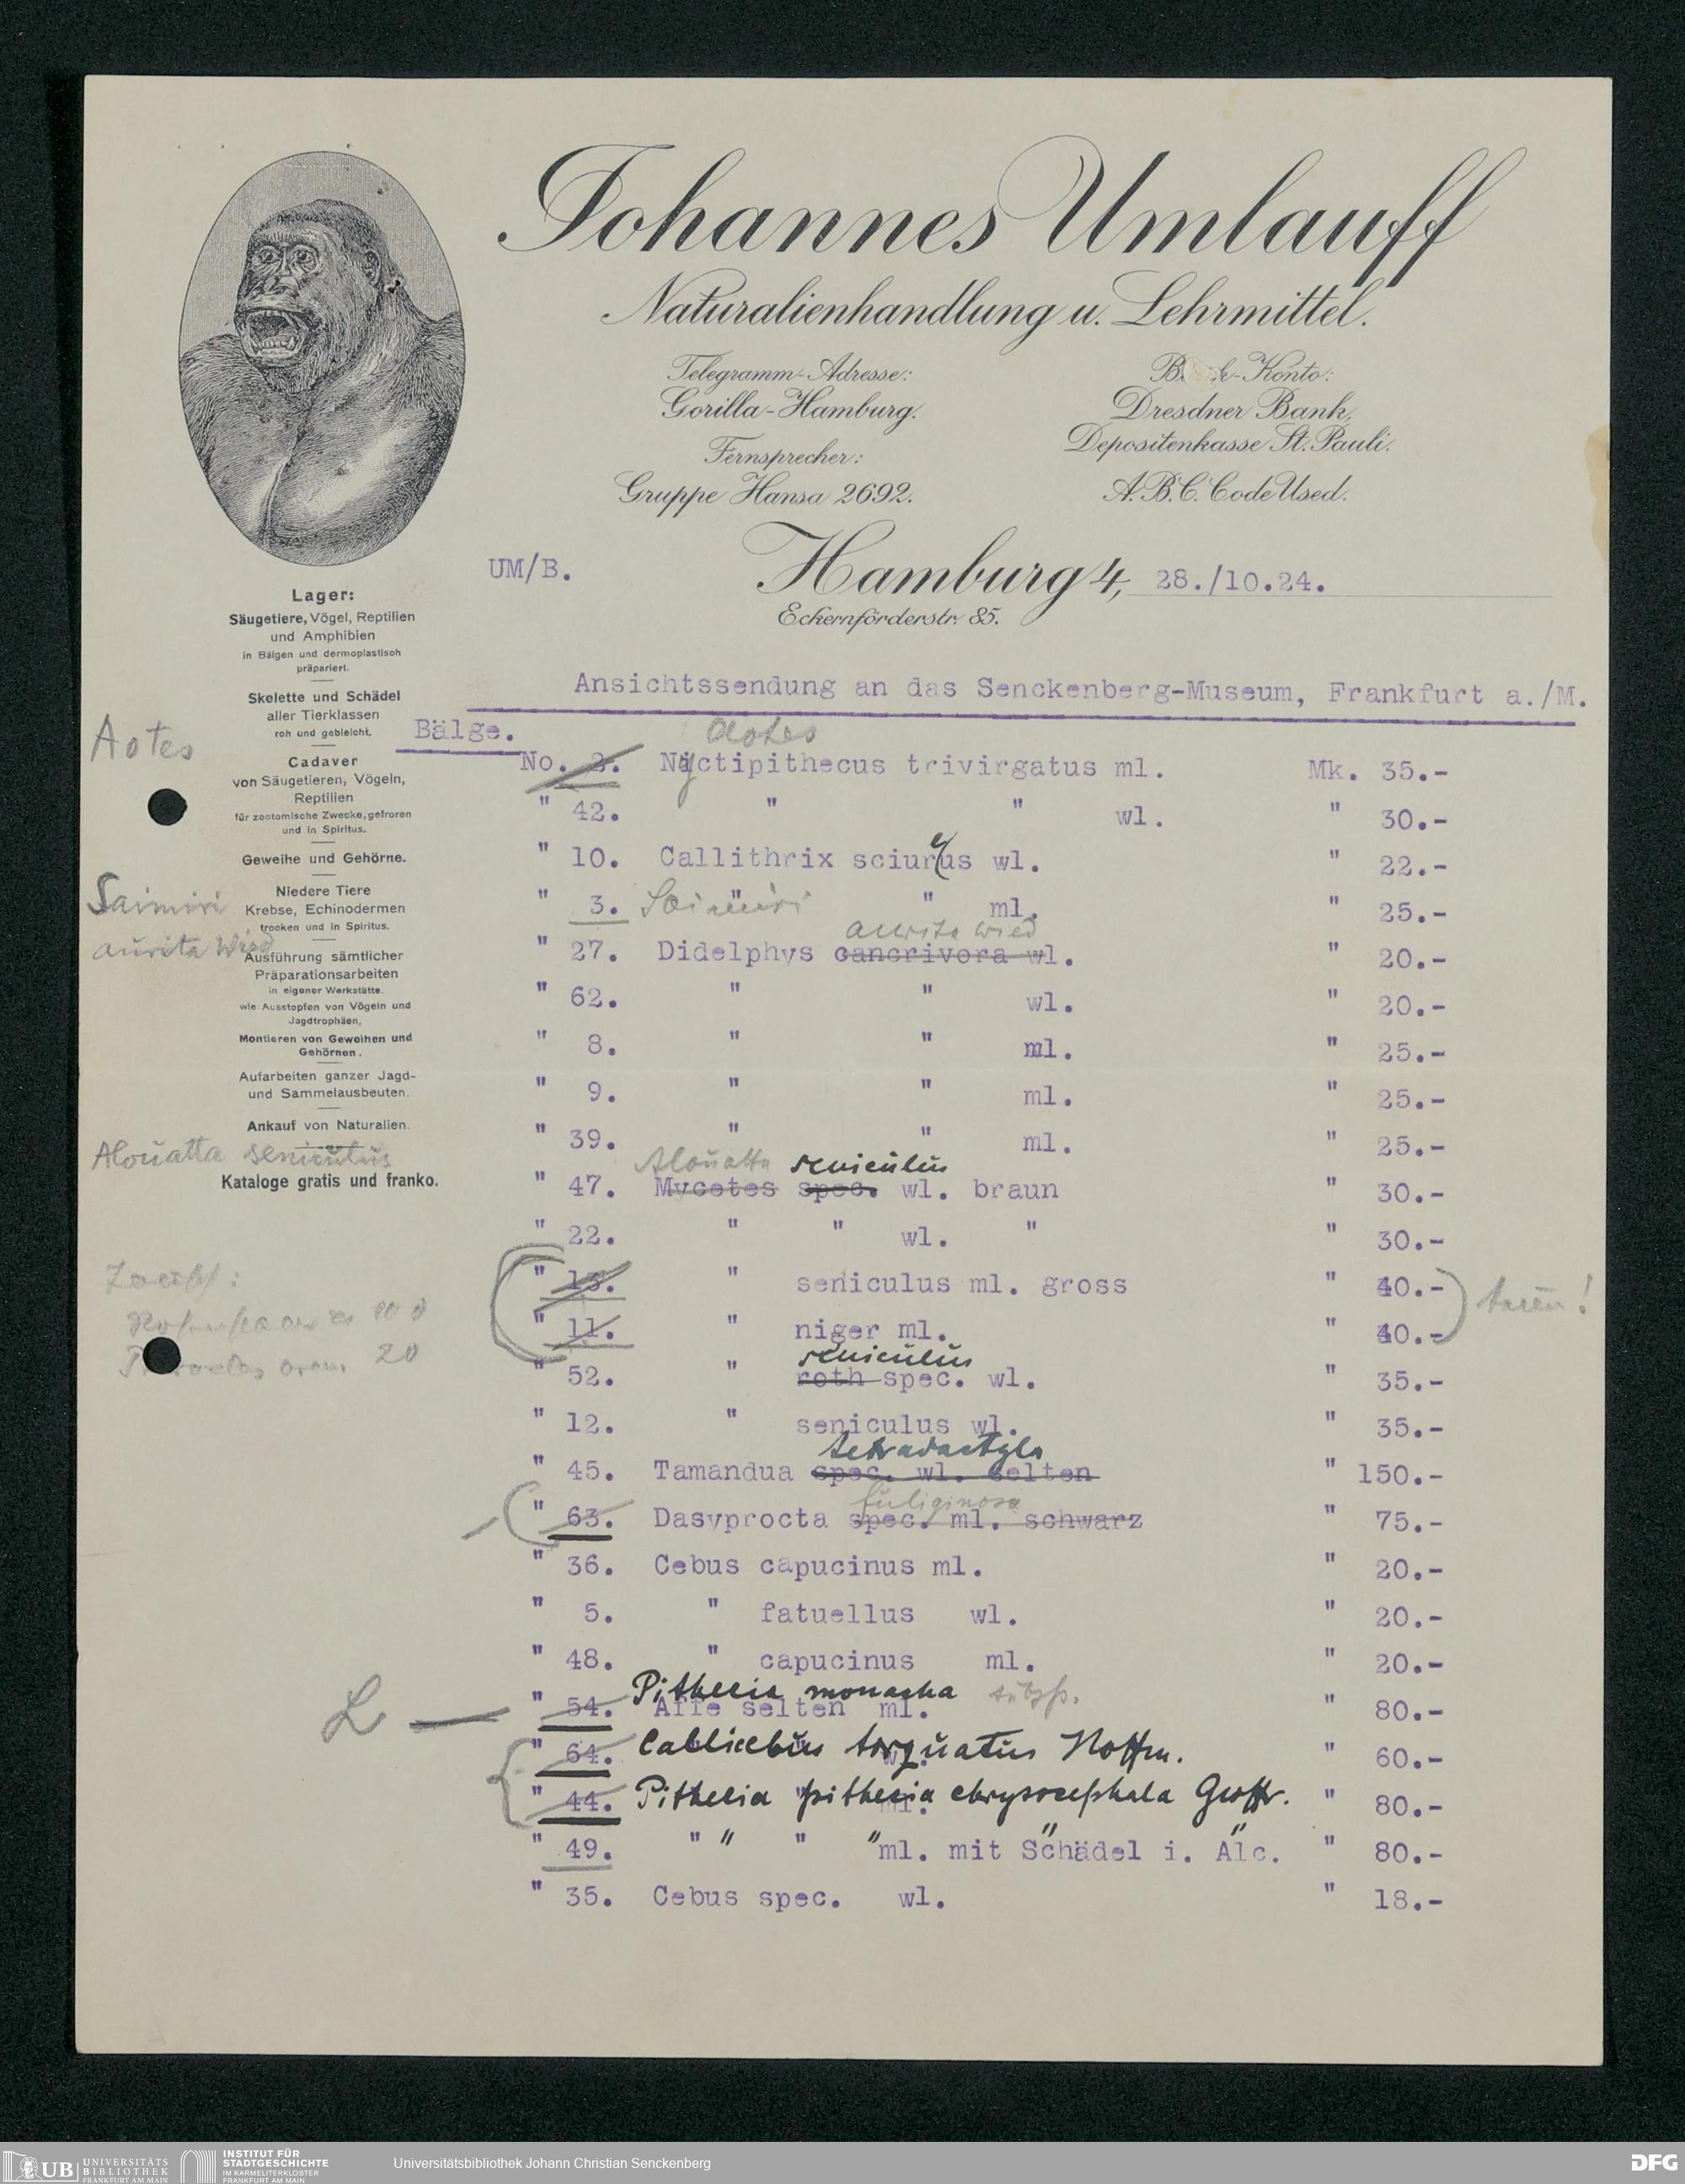 Johannes Umlauff
Naturalienhandlung u. Lehrmittel.
Telegramm-Adresse:
Gorilla-Hamburg.
Fernsprecher:
Gruppe Hansa 2692.
Konto:
Dresdner Bank,
Depositenkasse St. Pauli.
A.B.C. Code Used.
UM/B.
Hamburg 4, 28./10.24.
Eckernförderstr. 85.
Lager:
Säugetiere, Vögel, Reptilien
und Amphibien
in Bälgen und dermoplastisch
präpariert.
Skelette und Schädel
aller Tierklassen
roh und gebleicht.
Cadaver
von Säugetieren, Vögeln,
Reptilien
für zootomische Zwecke, gefroren
und in Spiritus.
Geweihe und Gehörne.
Niedere Tiere
Krebse, Echinodermen
trocken und in Spiritus.
Ausführung sämtlicher
Präparationsarbeiten
in eigener Werkstätte.
wie: Ausstopfen von Vögeln und
Jagdtrophäen,
Montieren von Geweihen und
Gehörnen.
Aufarbeiten ganzer Jagd-
und Sammelausbeuten.
Ankauf von Naturalien.
Kataloge gratis und franko.
Aotes
Saimiri
aurita Wied
Alouatta seniculus
20
Ansichtssendung an das Senckenberg-Museum, Frankfurt a./M.
Bälge.
Aotes
No. 2. Nyctipithecus trivirgatus ml. Mk. 35.-
" 42. " " wl. " 30.-
" 10. Callithrix sciureus wl. " 22.-
" 3. Saimiri " " ml. " 25.-
aurita Wied
" 27. Didelphys cancrivora wl. " 20.-
" 62. " " wl. " 20.-
" 8. " " ml. " 25.-
" 9. " " ml. " 25.-
" 39. " " ml. " 25.-
Alouatta seniculus
" 47. Mycetes spec. wl. braun " 30.-
" 22. " " wl. " " 30.-
" 13. " seniculus ml. gross " 40.-
" 11. " niger ml. " 40.-
seniculus
" 52. " roth spec. wl. " 35.-
" 12. " seniculus wl. " 35.-
tetradactyla
" 45. Tamandua spec. wl. selten " 150.-
fuliginosa
" 63. Dasyprocta spec. ml. schwarz " 75.-
" 36. Cebus capucinus ml. " 20.-
" 5. " fatuellus wl. " 20.-
" 48. " capucinus ml. " 20.-
Pithecia monacha subsp.
L — " 54. Affe selten ml. " 80.-
" 64. Callicebus torquatus Hoffm. " 60.-
" 44. Pithecia pithecia chrysocephala Geoffr. " 80.-
" 49. " " " " ml. mit Schädel i. Alc. " 80.-
" 35. Cebus spec. wl. " 18.-
UB UNIVERSITÄTS
BIBLIOTHEK
FRANKFURT AM MAIN
INSTITUT FÜR
STADTGESCHICHTE
IM KARMELITERKLOSTER
FRANKFURT AM MAIN
Universitätsbibliothek Johann Christian Senckenberg
DFG